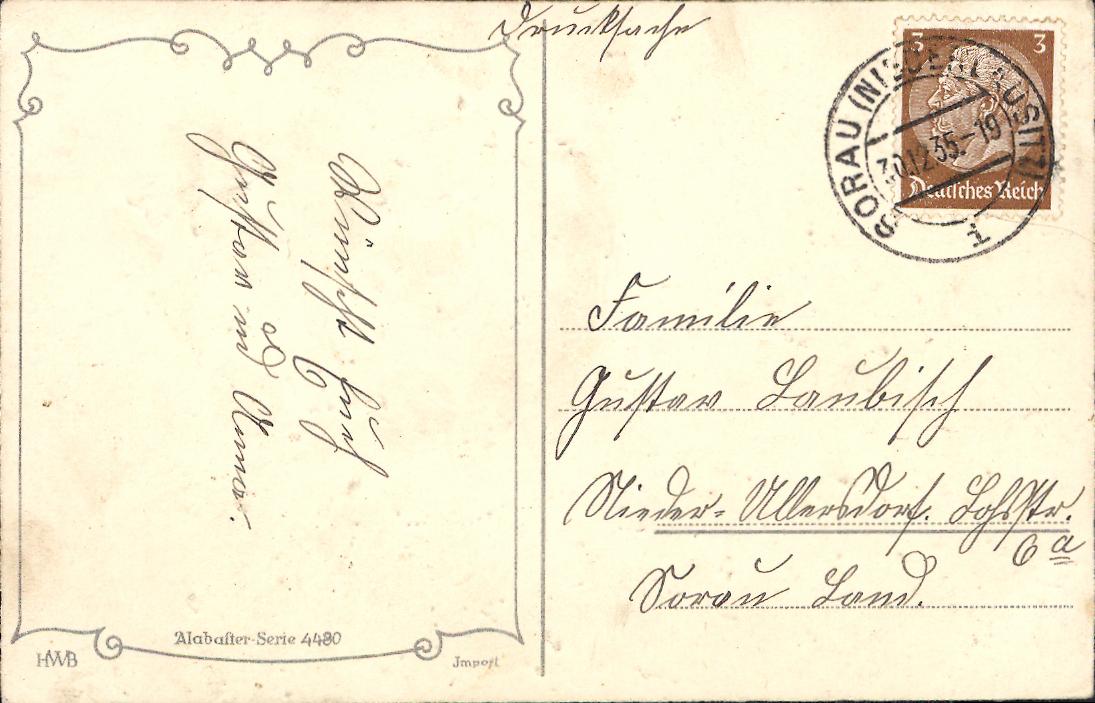 Drucksache
3 3
Deutsches Reich
SORAU (NIEDERLAUSITZ)
30.12.35.-19
1
Wünscht Euch
Gustav und Anna.
Familie
Gustav Laubisch
Nieder-Ullersdorf. Lohsstr.
6a
Sorau Land.
Alabaster-Serie 4480
HWB
Import